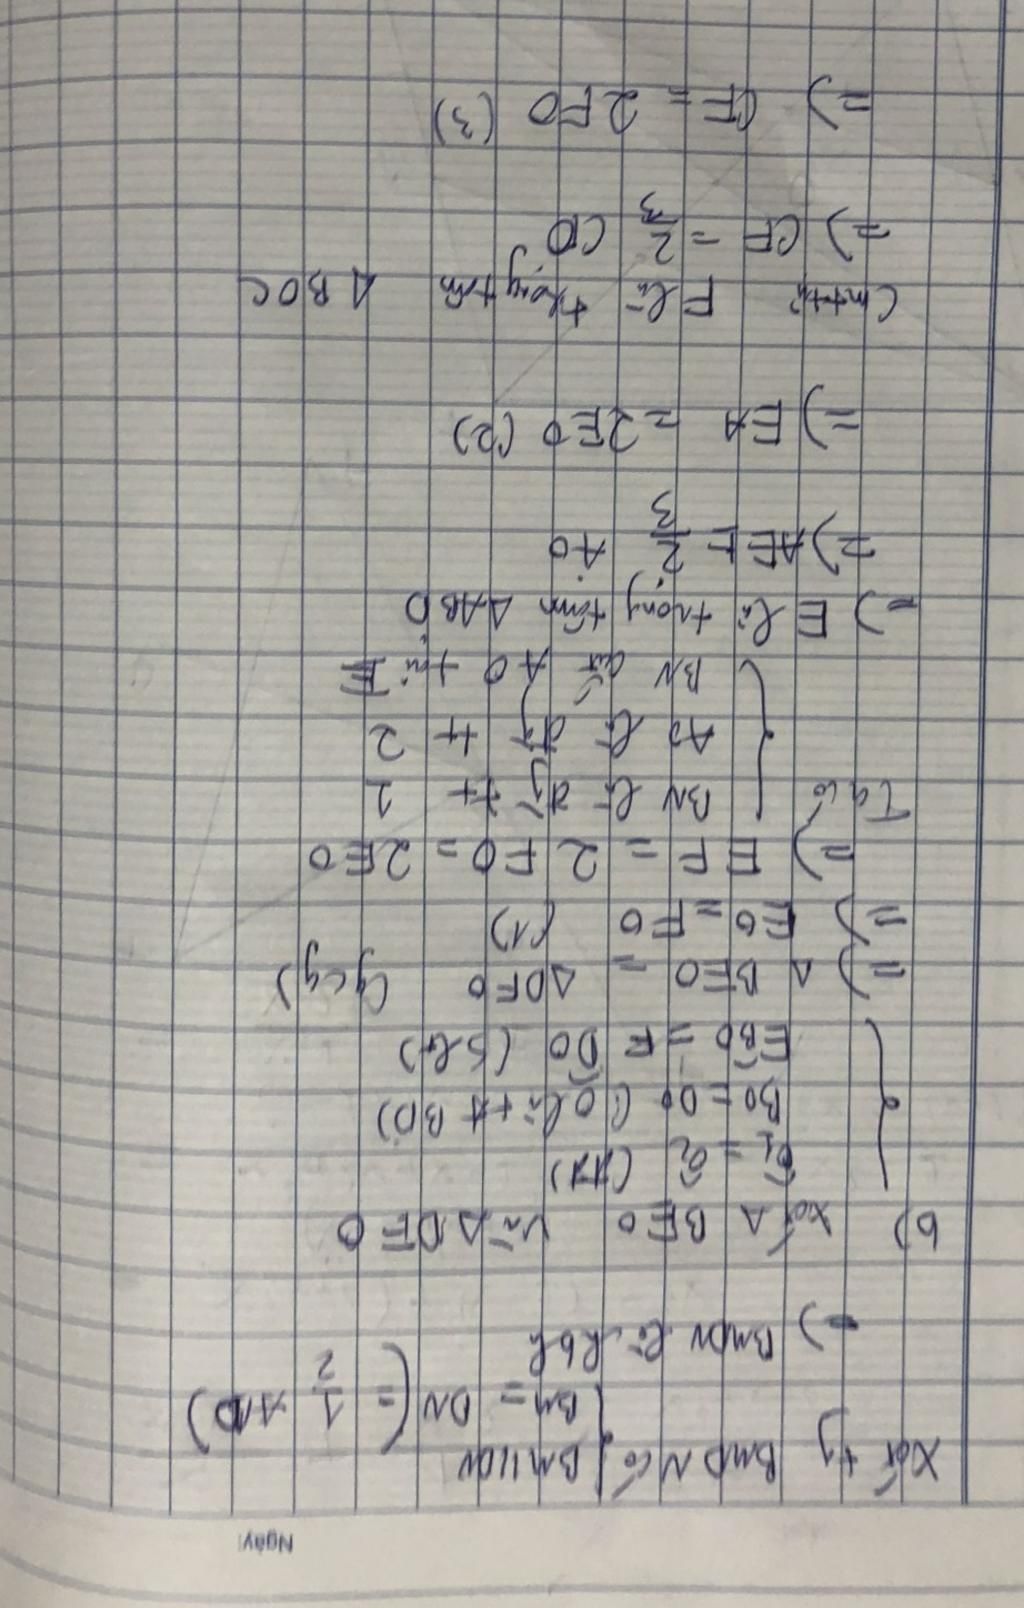 Ngày:
Xét tg BMDN có { BM // DN
BM = DN ( = 1/2 AD)
=) BMDN là hbh
b) Xét Δ BEO và Δ DFO
Ô1 = Ô2 (đđ)
BO = DO (O là tđ BD)
EB̂O = FD̂O (slt)
=) Δ BEO = Δ DFO (gcg)
=) EO = FO (1)
=) EF = 2 FO = 2EO
Ta có BN là đg tt 1
AO là đg tt 2
BN cắt AO tại E
=) E là trọng tâm Δ ABD
=) AE = 2/3 AO
=) EA = 2EO (2)
Cmtt F là trọng tâm Δ BDC
=) CF = 2/3 CO
=) CF = 2FO (3)